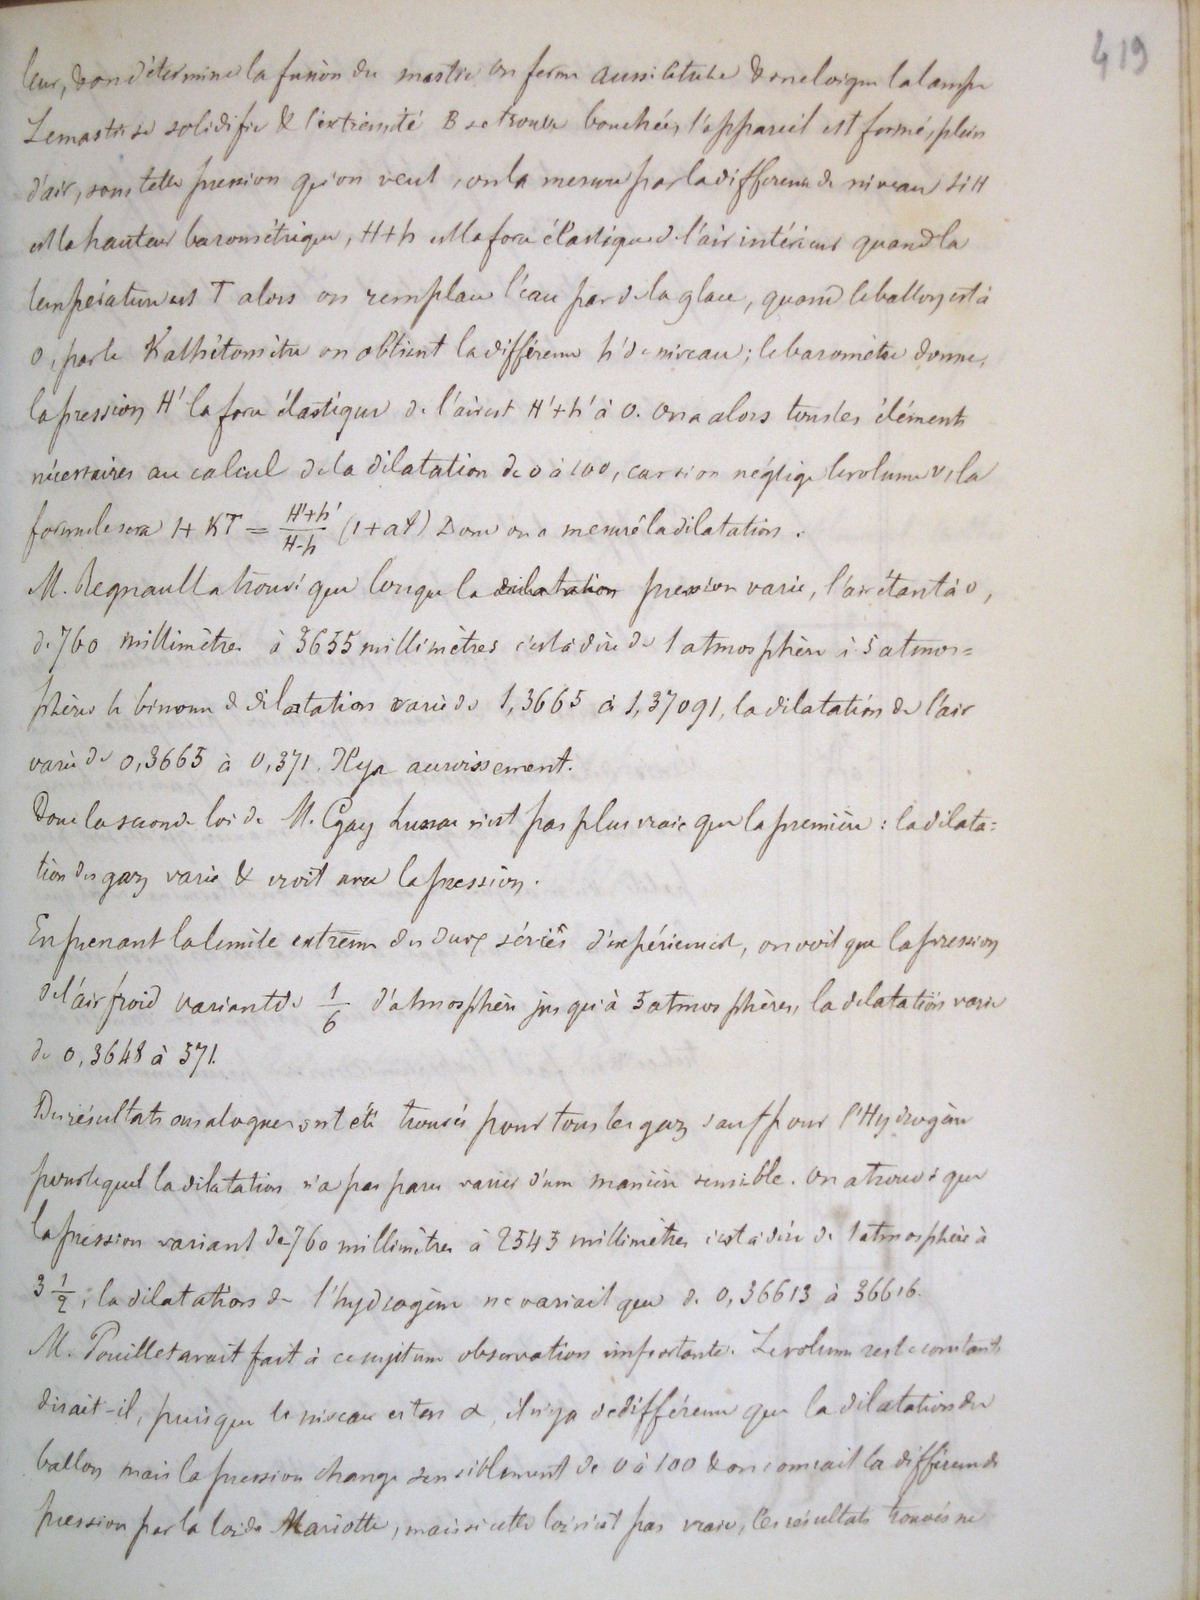 419
leur, & on détermine la fusion du mastic on ferme aussi le tube & on eloigne la lampe
Le mastic se solidifie & l'extrémité B se trouve bouchée, l'appareil est fermé, plein
d'air, sous telle pression qu'on veut, on la mesure par la différence de niveau si H
est la hauteur barométrique, H+h est la force élastique de l'air intérieur quand la
température est T alors on remplace l'eau par de la glace, quand le ballon est à
0, par le Kathétomètre on obtient la différence h' de niveau ; le baromètre donne
la pression H' la force élastique de l'air est H'+h' à 0. On a alors tous les éléments
nécessaires au calcul de la dilatation de 0 à 100, car si on néglige le volume v, la
formule sera 1+KT = H'+h' / H-h (1+at) Donc on a mesuré la dilatation.
M. Regnault a trouvé que lorsque la dilatation pression varie, l'air étant à 0,
de 760 millimètres à 3655 millimètres c'est à dire de 1 atmosphère à 5 atmos=
phères le binome de dilatation varie de 1,3665 à 1,37091, la dilatation de l'air
varie de 0,3665 à 0,371. Il y a accroissement.
Donc la seconde loi de M. Gay Lussac n'est pas plus vraie que la première : la dilata=
tion des gaz varie & croit avec la pression.
En prenant la limite extrême des deux séries d'expériences, on voit que la pression
de l'air froid variant de 1/6 d'atmosphère jusqu'à 5 atmosphères, la dilatation varie
de 0,3648 à 371.
Des résultats analogues ont été trouvés pour tous les gaz sauf pour l'Hydrogène
pour lequel la dilatation n'a pas paru varier d'une manière sensible. On a trouvé que
la pression variant de 760 millimètres à 2545 millimètres c'est à dire de 1 atmosphère à
3 1/2, la dilatation de l'hydrogène ne variait que de 0,36613 à 36616.
M. Pouillet avait fait à ce sujet une observation importante. Le volume reste constant
disait-il, puisque le niveau est en α, il n'y a de différence que la dilatation du
ballon mais la pression change sensiblement de 0 à 100 & on connait la différence de
pression par la loi de Mariotte, mais si cette loi n'est pas vraie, les résultats trouvés ne